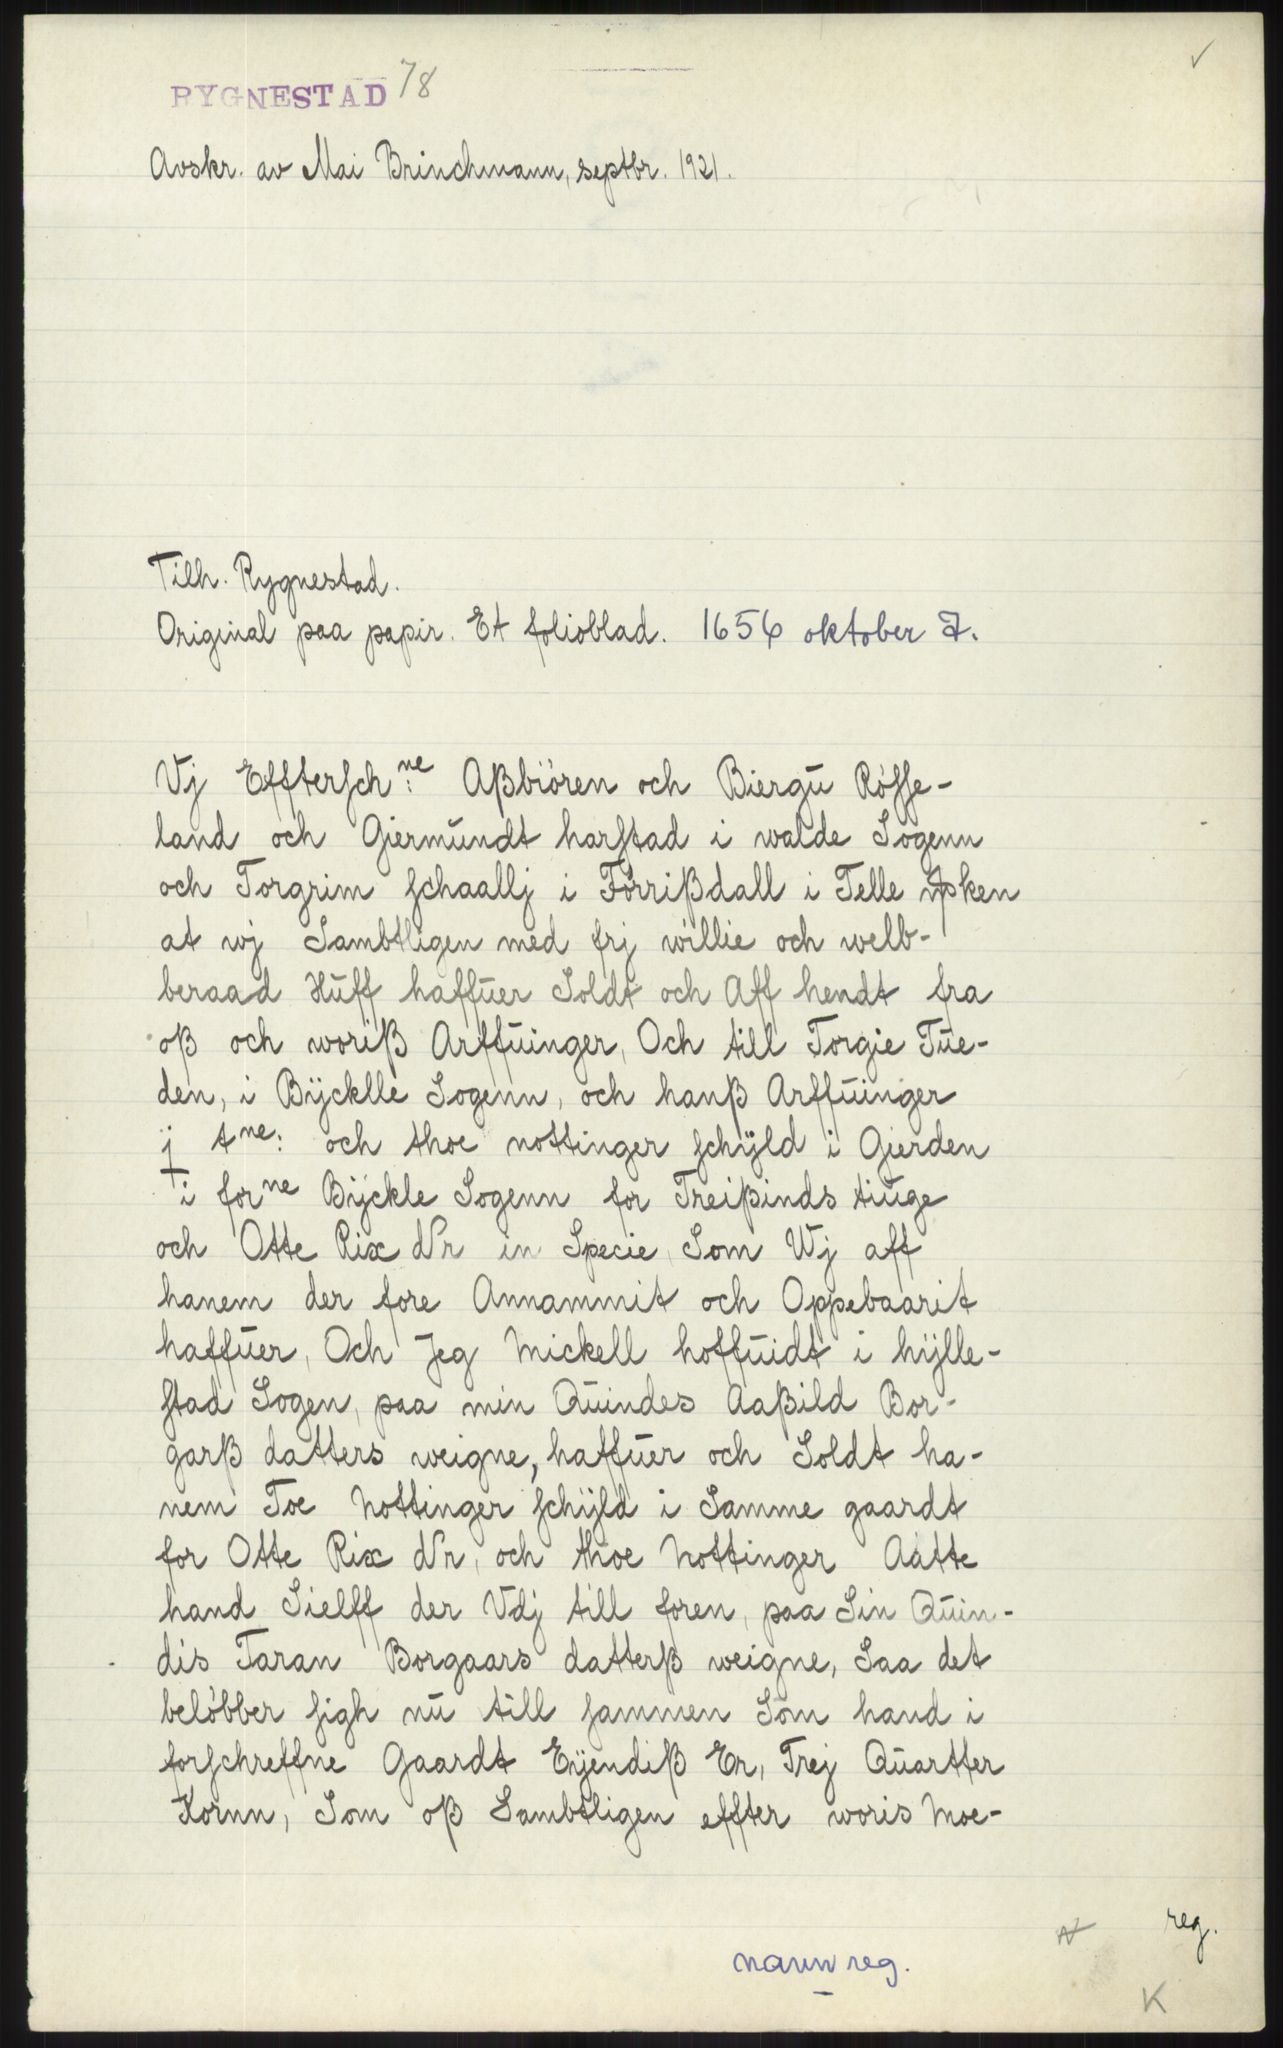 RYGNESTAD 78
Avskr. av Mai Brinchmann, septbr. 1921.
Tilh. Rygnestad.
Original paa papir. Et folioblad. 1656 oktober 7.
Vj Efftersch:ⁿᵉ Aßbiören och Biergü Røsse-
land och Giermündt harstad i walde Sogenn
och Torgrim schaallj i Førrißdall i Telle
at wj Sambtligen med frj willie och welb-
beraad Hüff haffüer Soldt och Aff hendt fra
oß och woriß Arffüinger, Och till Torgie Tüe-
den, i Býcklle Sogenn, och hanß Arffüinger
j tⁿᵉ: och thoe nottinger schÿld i Gierden
i forⁿᵉ Bÿckle Sogenn for Treißinds tiüge
och Otte Rix dlr in Specie, Som Wj aff
hanem der fore Annammit och Oppebaarit
haffüer, Och Jeg Mickell hoffüidt i hÿlle-
stad Sogen, paa min Qüindes Aaßild Bor-
garß datters weigne, haffüer och Soldt ha-
nem Toe Nottinger schÿld i Samme gaardt
for Otte Rix dlr, och thoe Nottinger Aatte
hand Sielff der Vdj till foren, paa Sin Qüin-
dis Taran Borgaars datterß weigne, Saa det
beløbber sigh nü till sammen Som hand i
forschreffne Gaardt Eÿendiß Er, Trej Qüartter
Kornn, Som oß Sambtligen effter woris Moe-
reg.
navnreg.
K